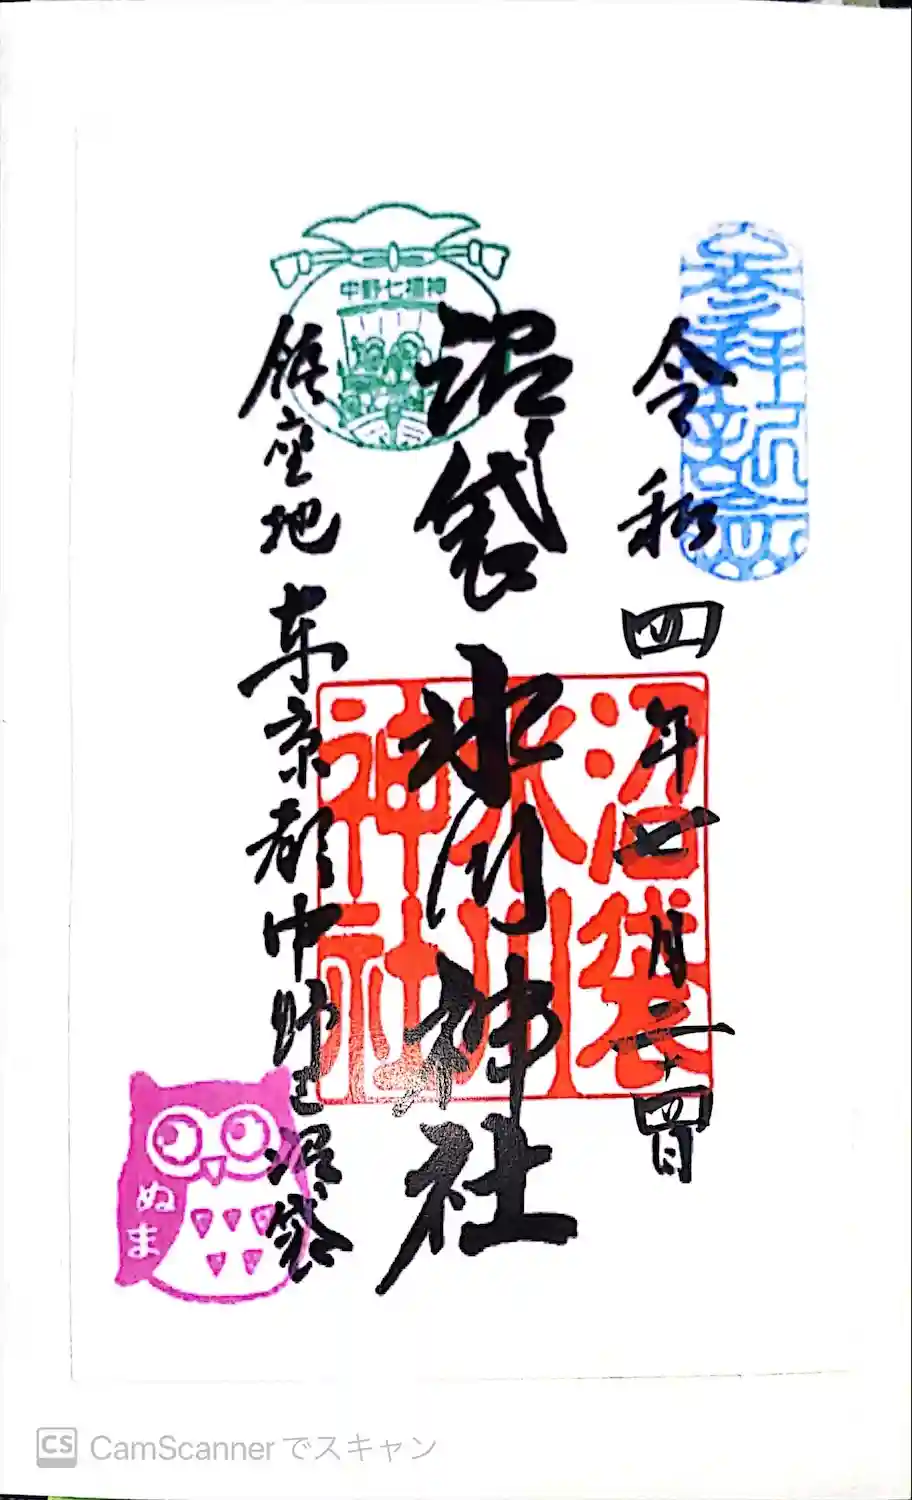 参拝祈念
令和四年七月二十四日
中野七福神
沼袋氷川神社
沼袋
氷川
神社
鎮座地 東京都中野区沼袋
ぬま
CS CamScannerでスキャン